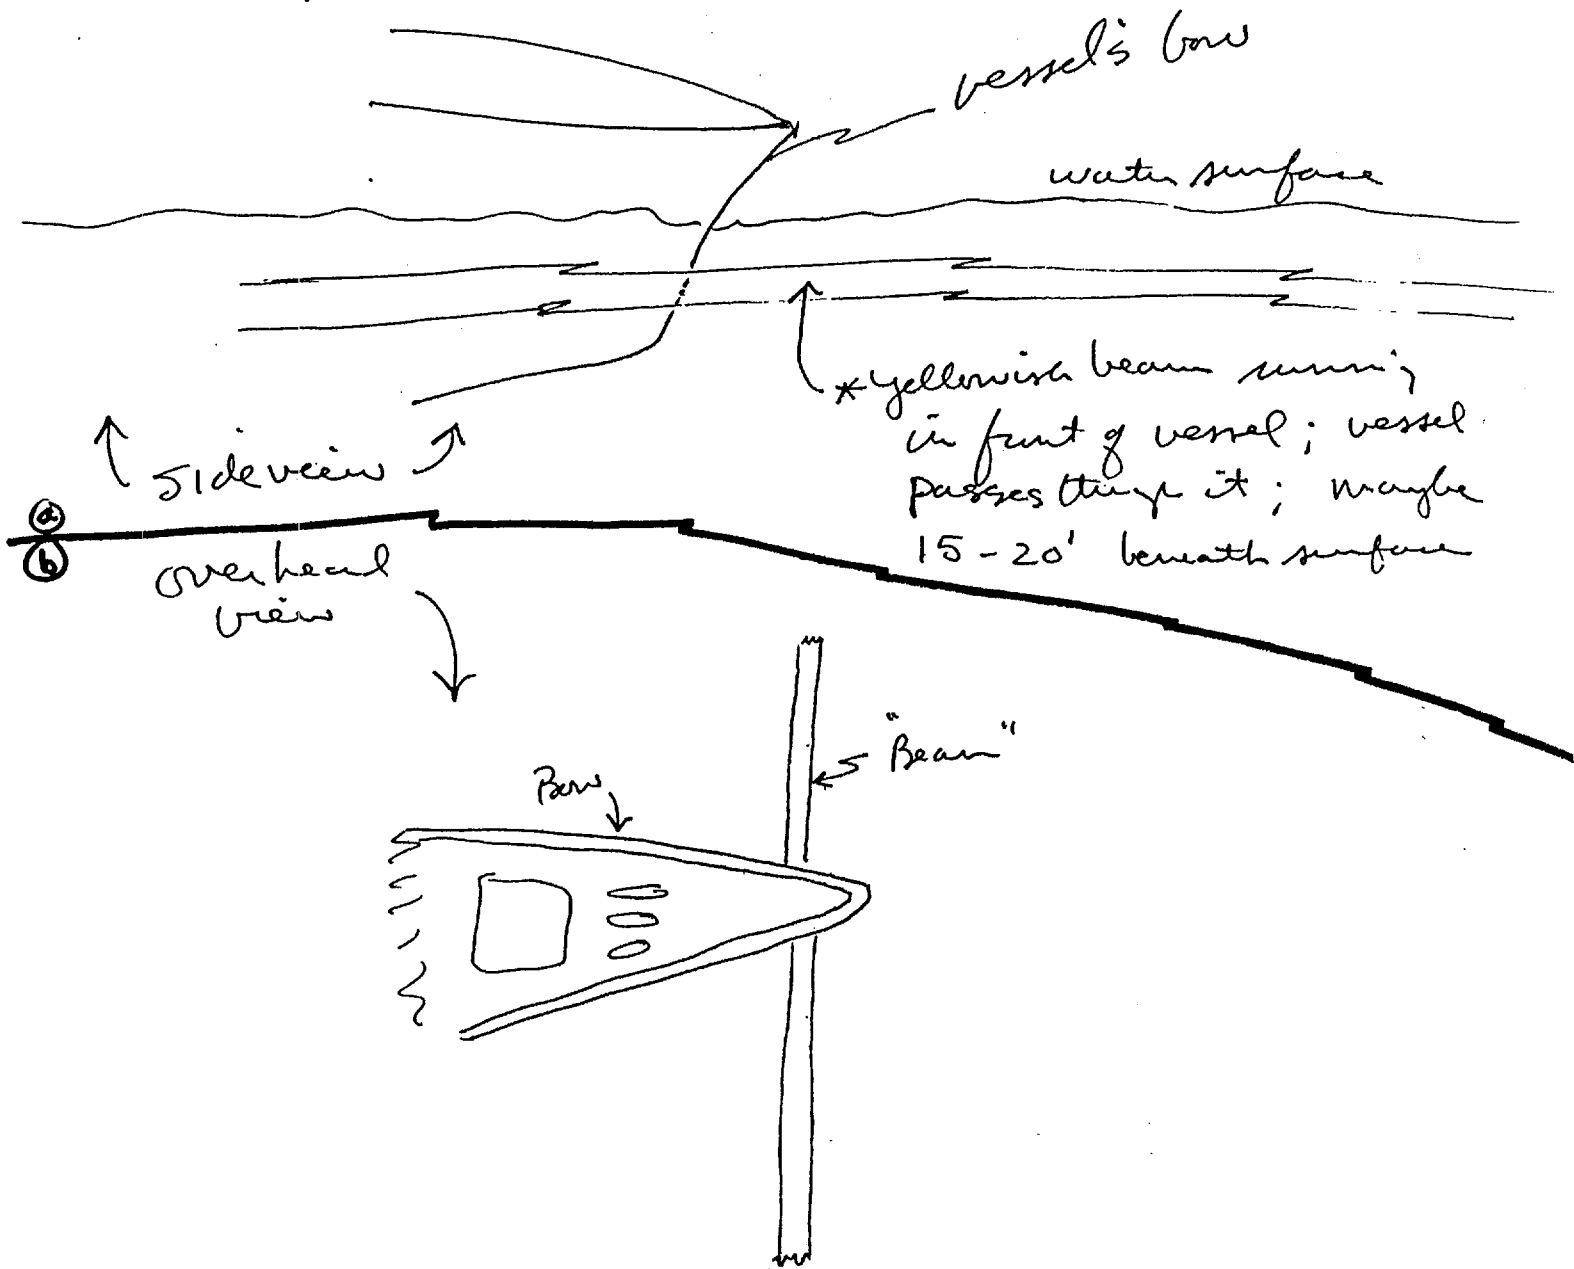 vessel's bow
water surface
*yellowish beam running
in front of vessel; vessel
passes through it; maybe
15-20' beneath surface
side view
(a)
(b)
overhead
view
"Beam"
Bow